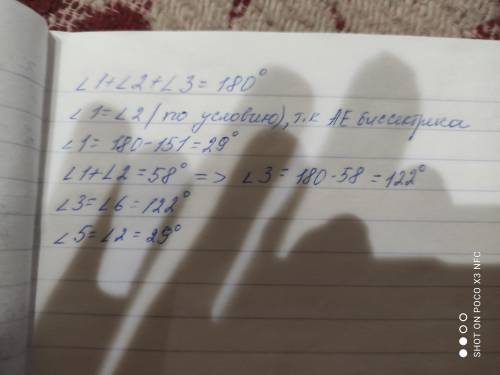 ∠1+∠2+∠3 = 180°
∠1=∠2 (по условию), т.к АЕ биссектриса
∠1 = 180-151 = 29°
∠1+∠2 = 58° => ∠3 = 180-58 = 122°
∠3=∠6 = 122°
∠5=∠2 = 29°
SHOT ON POCO X3 NFC